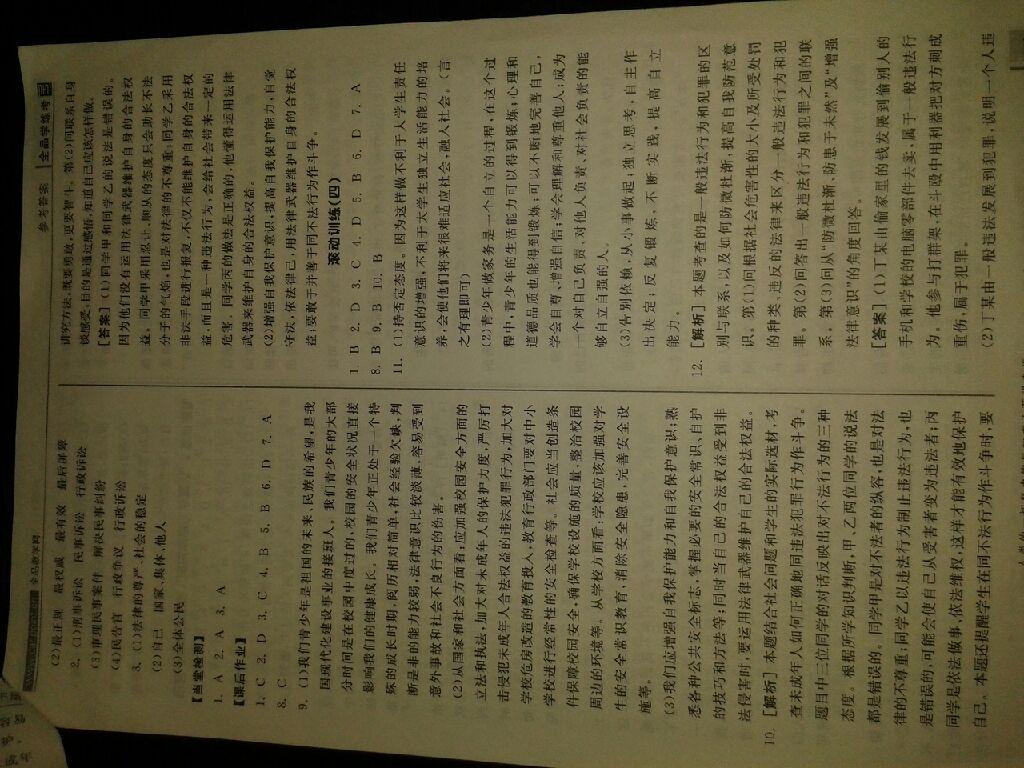 全品教学网
(2)最正规 最权威 最有效 最后屏障
2. (1)刑事诉讼 民事诉讼 行政诉讼
(3)审理民事案件 解决民事纠纷
(4)民告官 行政争议 行政诉讼
3. (1)法律的尊严 社会的稳定
(2)自己 国家、集体、他人
(3)全体公民
【当堂检测】
1. A 2. A 3. A
【课后作业】
1. C 2. D 3. C 4. B 5. B 6. D 7. A
8. C
9. (1)我们青少年是祖国的未来、民族的希望,是我
国现代化建设事业的接班人。我们青少年的大部
分时间是在校园中度过的,校园的安全状况直接
影响我们的健康成长。我们青少年正处于一个特
殊的成长时期,阅历相对简单,社会经验欠缺,判
断是非的能力较弱,法律意识比较淡薄,容易受到
意外事故和社会不良行为的伤害。
(2)从国家和社会方面看:应加强校园安全方面的
立法和执法,加大对未成年人的保护力度,严厉打
击侵犯未成年人合法权益的违法犯罪行为,加大对
学校危房改造的教育投入,教育行政部门要对中小
学校进行经常性的安全检查等。社会应当创造条
件保障校园安全,确保学校设施的质量,整治校园
周边的环境等。从学校方面看:学校应该加强对学
生的安全常识教育,消除安全隐患,完善安全设
施等。
(3)我们应增强自我保护能力和自我保护意识;熟
悉各种公共安全标志,掌握必要的安全常识、自护
的技巧和方法等;同时当自己的合法权益受到非
法侵害时,要运用法律武器维护自己的合法权益。
10. [解析] 本题结合社会问题和学生的实际选材,考
查未成年人如何正确地同违法犯罪行为作斗争。
题目中三位同学的对话反映出对不法行为的三种
态度。根据所学知识判断,甲、乙两位同学的说法
都是错误的。同学甲是对不法者的纵容,也是对法
律的不尊重;同学乙以违法行为制止违法行为,也
是错误的,可能会使自己从受害者变为违法者;丙
同学是依法做事,依法维权,这样才能有效地保护
自己。本题还提醒学生在同不法行为作斗争时,要
参考答案 全品学练考
讲究方法,既要勇敢,更要智斗。第(2)问联系自身
谈感受,目的是通过感悟,知道自己应该怎样做。
[答案] (1)同学甲和同学乙的说法是错误的。
因为他们没有运用法律武器维护自身的合法权
益。同学甲采用忍让、顺从的态度只会助长不法
分子的气焰,也是对法律的不尊重;同学乙采用
非法手段进行报复,不仅不能维护自身的合法权
益,而且是一种违法行为,会给社会带来一定的
危害。同学丙的做法是正确的,他懂得运用法律
武器来维护自身的合法权益。
(2)增强自我保护意识,提高自我保护能力,自觉
守法、依法律己,用法律武器维护自身的合法权
益;要敢于并善于同不法行为作斗争。
滚动训练(四)
1. B 2. D 3. C 4. D 5. B 6. D 7. A
8. B 9. B 10. B
11. (1)持否定态度。因为这样做不利于大学生责任
意识的增强,不利于大学生独立生活能力的培
养,会使他们将来很难适应社会,融入社会。(言
之有理即可)
(2)青少年做家务是一个自立的过程,在这个过
程中,青少年的生活能力可以得到锻炼;心理和
道德品质也能得到锻炼;可以不断地完善自己,
学会自尊、增强自信;学会理解和尊重他人;成为
一个对自己负责、对他人负责、对社会负责的能
够自立自强的人。
(3)告别依赖,从小事做起;独立思考,自主作
出决定;反复锻炼,不断实践,提高自立
能力。
12. [解析] 本题考查的是一般违法行为和犯罪的区
别与联系,以及自如何防微杜渐,提高自我防范意
识。第(1)问根据社会危害性的大小及所受处罚
的种类、违反的法律来区分一般违法行为和犯
罪。第(2)问答出一般违法行为和犯罪之间的联
系。第(3)问从“防微杜渐、防患于未然”及“增强
法律意识”的角度回答。
[答案] (1)丁某由偷家里的钱发展到偷别人的
手机和学校的电脑零部件去卖,属于一般违法行
为。他参与打群架,在斗殴中用利器把对方刺成
重伤,属于犯罪。
(2)丁某由一般违法发展到犯罪,说明一个人违